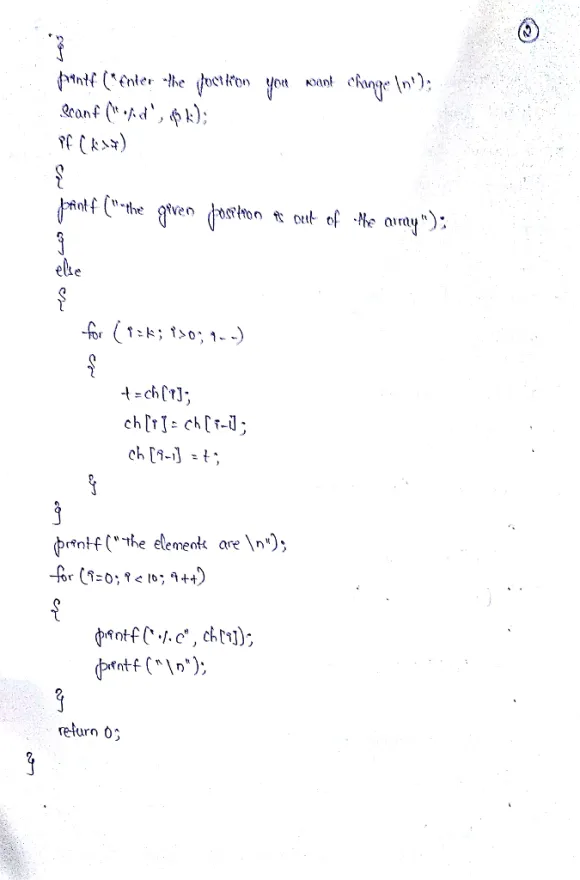 2
}
printf ("Enter the position you want change \n");
scanf ("%d", &k);
if (k>7)
{
printf ("the given position is out of the array");
}
else
{
for (i=k; i>0; i--)
{
t=ch[i];
ch[i]= ch[i-1];
ch[i-1] =t;
}
}
printf ("the elements are \n");
for (i=0; i<10; i++)
{
printf ("%c", ch[i]);
printf ("\n");
}
return 0;
}